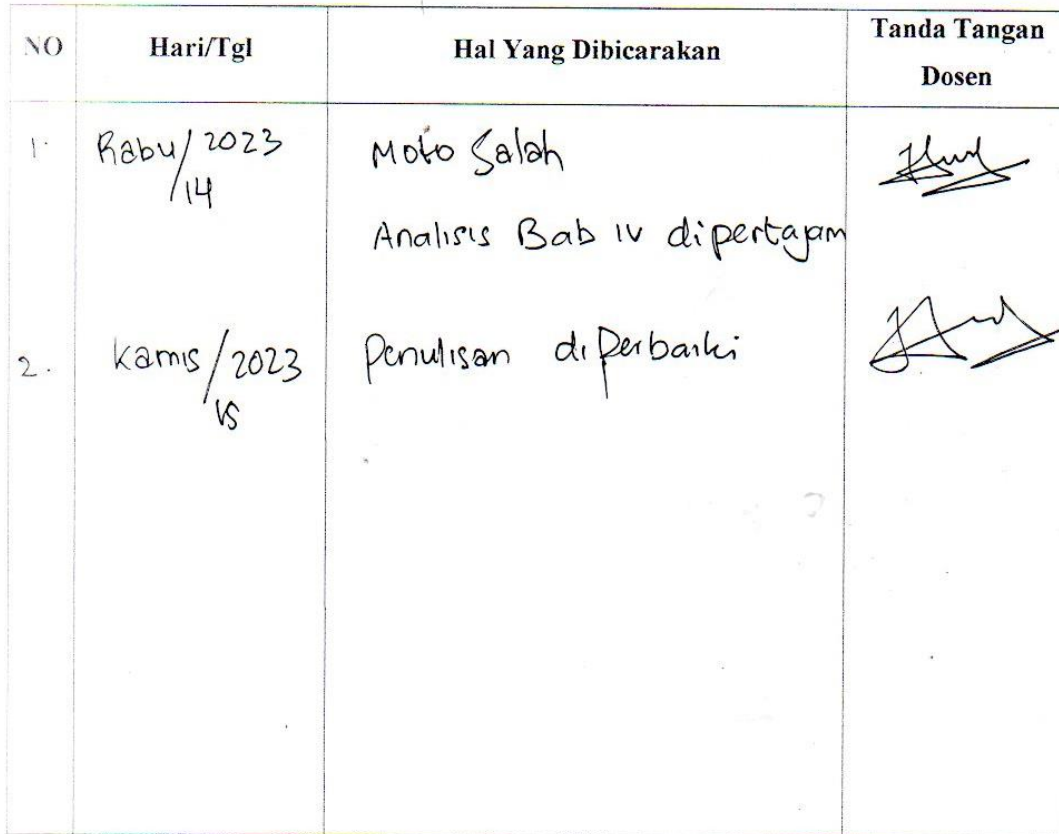 NO Hari/Tgl Hal Yang Dibicarakan Tanda Tangan
Dosen
1. Rabu/2023 Moto Salah
/14
Analisis Bab IV dipertajam
2. Kamis/2023 Penulisan diperbaiki
/15